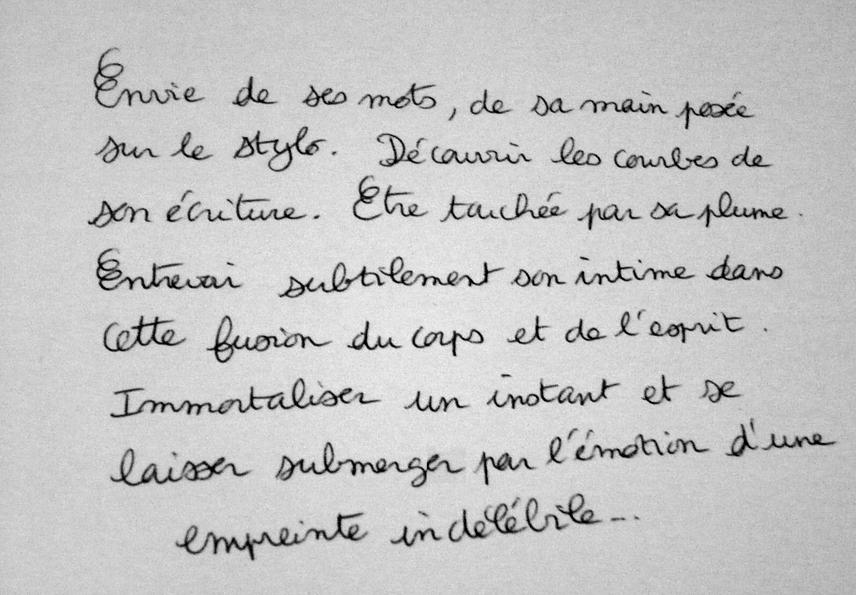 Envie de ses mots, de sa main posée
sur le stylo. Découvrir les courbes de
son écriture. Etre touchée par sa plume.
Entrevoir subtilement son intime dans
cette fusion du corps et de l'esprit.
Immortaliser un instant et se
laisser submerger par l'émotion d'une
empreinte indélébile...